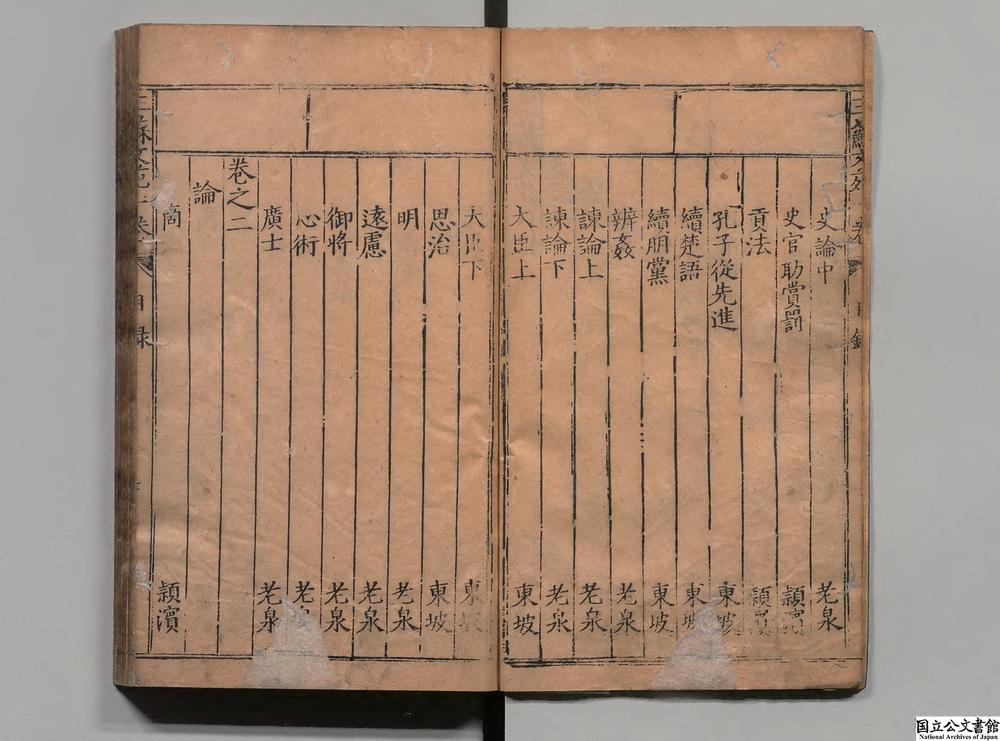 史論中 老泉
史官助賞罰 潁濵
貢法 潁濵
孔子從先進 東坡
續楚語 東坡
續朋黨 東坡
辨姦 老泉
諫論上 老泉
諫論下 老泉
大臣上 東坡
大臣下 東坡
思治 東坡
明 老泉
遠慮 老泉
御將 老泉
心術 老泉
廣士 老泉
卷之二
論
商 潁濵
国立公文書館
National Archives of Japan